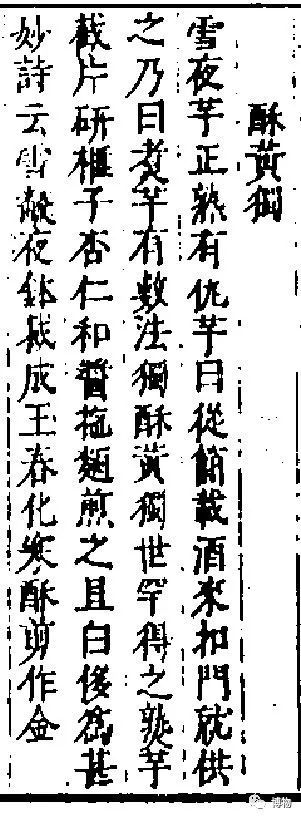 酥黃獨
雪夜芋正熟有仇芋曰從簡載酒來扣門就供
之乃曰煑芋有數法獨酥黃獨世罕得之熟芋
截片研榧子杏仁和醬拖麵煎之且白侈爲甚
妙詩云雪翻夜鉢裁成王春化寒酥剪作金
博物